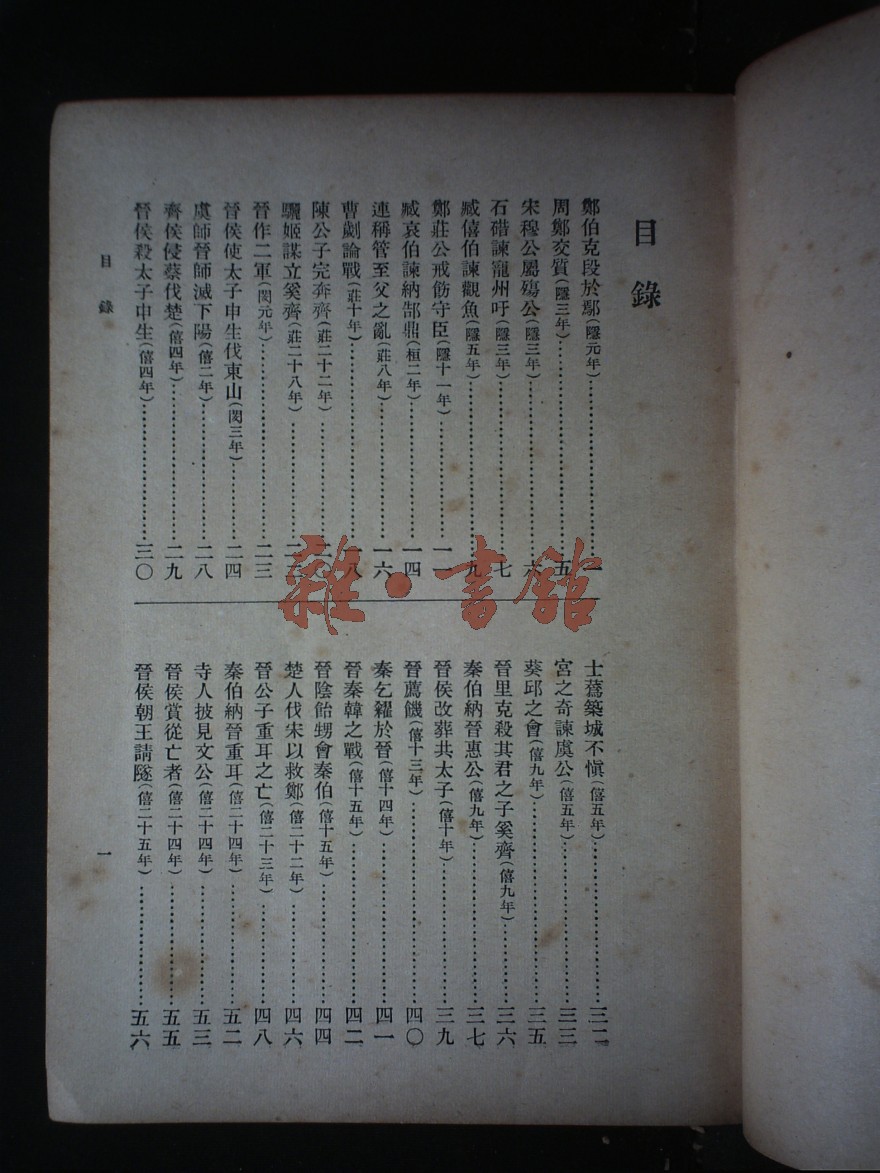 目錄
鄭伯克段於鄢(隱元年)……一
周鄭交質(隱三年)……五
宋穆公屬殤公(隱三年)……六
石碏諫寵州吁(隱三年)……七
臧僖伯諫觀魚(隱五年)……九
鄭莊公戒飭守臣(隱十一年)……一一
臧哀伯諫納郜鼎(桓二年)……一四
連稱管至父之亂(莊八年)……一六
曹劌論戰(莊十年)……一八
陳公子完奔齊(莊二十二年)……二〇
驪姬謀立奚齊(莊二十八年)……二二
晉作二軍(閔元年)……二三
晉侯使太子申生伐東山(閔三年)……二四
虞師晉師滅下陽(僖二年)……二八
齊侯侵蔡伐楚(僖四年)……二九
晉侯殺太子申生(僖四年)……三〇
士蔿築城不愼(僖五年)……三二
宮之奇諫虞公(僖五年)……三三
葵邱之會(僖九年)……三五
晉里克殺其君之子奚齊(僖九年)……三六
秦伯納晉惠公(僖九年)……三七
晉侯改葬共太子(僖十年)……三九
晉薦饑(僖十三年)……四〇
秦乞糴於晉(僖十四年)……四一
晉秦韓之戰(僖十五年)……四二
晉陰飴甥會秦伯(僖十五年)……四四
楚人伐宋以救鄭(僖二十二年)……四六
晉公子重耳之亡(僖二十三年)……四八
秦伯納晉重耳(僖二十四年)……五二
寺人披見文公(僖二十四年)……五三
晉侯賞從亡者(僖二十四年)……五五
晉侯朝王請隧(僖二十五年)……五六
目錄
一
雜·書館